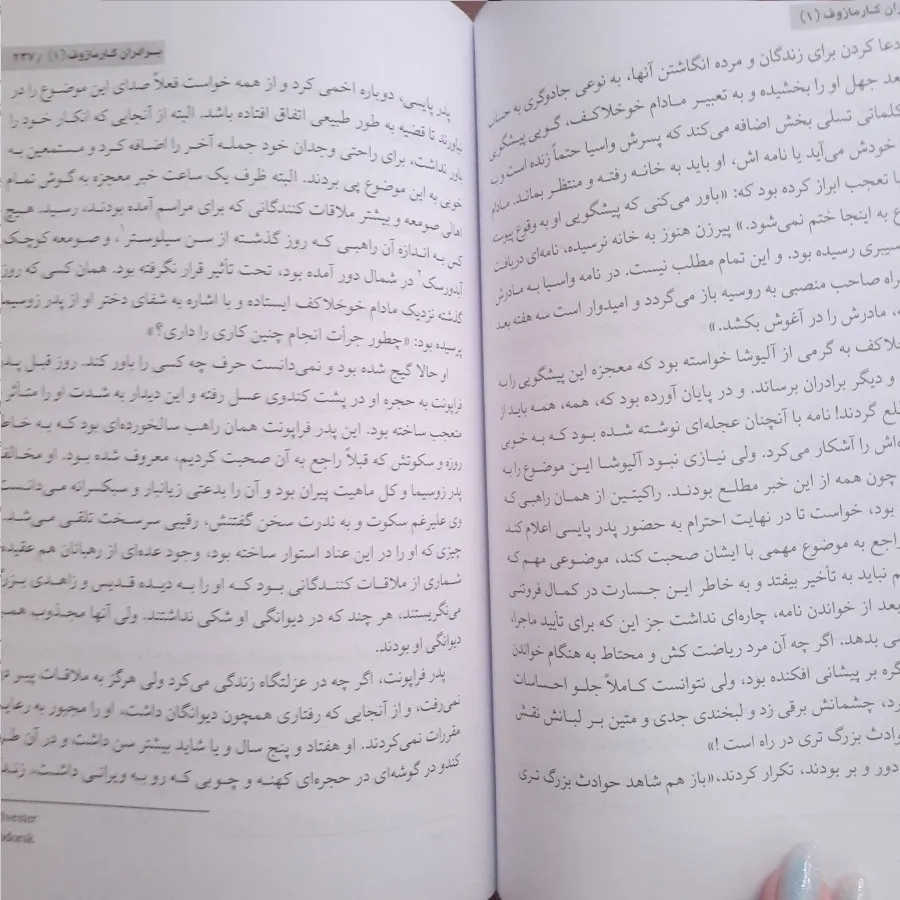 ران کارمازوف (۱)
دعا کردن برای زندگان و مرده انگاشتن آنها، به نوعی جادوگری به حساب
عد جهل او را بخشیده و به تعبیر مادام خوخلاکف، گویی پیشگوئی
کلماتی تسلی بخش اضافه می‌کند که پسرش واسیا حتماً زنده است و
خودش می‌آید یا نامه اش، او باید به خانه رفته و منتظر بماند. مادام
ا تعجب ابراز کرده بود که: «باور می‌کنی که پیشگویی او به وقوع پیوست
ع به اینجا ختم نمی‌شود.» پیرزن هنوز به خانه نرسیده، نامه‌ای دریافت
سیبری رسیده بود. و این تمام مطلب نیست. در نامه واسیا به مادرش
راه صاحب منصبی به روسیه باز می‌گردد و امیدوار است سه هفته بعد
ه، مادرش را در آغوش بکشد.»
خلاکف به گرمی از آلیوشا خواسته بود که معجزه این پیشگویی را به
و دیگر برادران برساند. و در پایان آورده بود که، همه، همه باید از
طلع گردند! نامه با آنچنان عجله‌ای نوشته شده بود که به خوبی
ه‌اش را آشکار می‌کرد. ولی نیازی نبود آلیوشا این موضوع را به
چون همه از این خبر مطلع بودند. راکیتین از همان راهبی که
بود، خواست تا در نهایت احترام به حضور پدر پایسی اعلام کند
راجع به موضوع مهمی با ایشان صحبت کند، موضوعی مهم که
م نباید به تأخیر بیفتد و به خاطر این جسارت در کمال فروتنی
بعد از خواندن نامه، چاره‌ای نداشت جز این که برای تأیید ماجرا،
ی بدهد. اگر چه آن مرد ریاضت کش و محتاط به هنگام خواندن
گره بر پیشانی افکنده بود، ولی نتوانست کاملاً جلو احساسات
رد، چشمانش برقی زد و لبخندی جدی و متین بر لبانش نقش
وادث بزرگ تری در راه است !»
دور و بر بودند، تکرار کردند،«باز هم شاهد حوادث بزرگ تری
برادران کارمازوف (۱) / ۲۳۷
پدر پایسی، دوباره اخمی کرد و از همه خواست فعلاً صدای این موضوع را در
نیاورند تا قضیه به طور طبیعی اتفاق افتاده باشد. البته از آنجایی که انکار خود را
باور نداشت، برای راحتی وجدان خود جمله آخر را اضافه کرد و مستمعین به
خوبی به این موضوع پی بردند. البته ظرف یک ساعت خبر معجزه به گوش تمام
اهالی صومعه و بیشتر ملاقات کنندگانی که برای مراسم آمده بودند، رسید. هیچ
کس به اندازه آن راهبی که روز گذشته از سن سیلوستر۱، و صومعه کوچک
آبدورسک۲ در شمال دور آمده بود، تحت تأثیر قرار نگرفته بود. همان کسی که روز
گذشته نزدیک مادام خوخلاکف ایستاده و با اشاره به شفای دختر او از پدر زوسیما
پرسیده بود: «چطور جرأت انجام چنین کاری را داری؟»
او حالا گیج شده بود و نمی‌دانست حرف چه کسی را باور کند. روز قبل پدر
فراپونت به حجره او در پشت کندوی عسل رفته و این دیدار به شدت او را متأثر
متعجب ساخته بود. این پدر فراپونت همان راهب سالخورده‌ای بود که به خاطر
روزه و سکوتش که قبلاً راجع به آن صحبت کردیم، معروف شده بود. او مخالف
پدر زوسیما و کل ماهیت پیران بود و آن را بدعتی زیانبار و سبکسرانه می‌دانست.
وی علیرغم سکوت و به ندرت سخن گفتنش، رقیبی سرسخت تلقی می‌شد.
چیزی که او را در این عناد استوار ساخته بود، وجود عده‌ای از رهبانان هم عقیده
شماری از ملاقات کنندگانی بود که او را به دیده قدیس و زاهدی بزرگ
می‌نگریستند، هر چند که در دیوانگی او شکی نداشتند. ولی آنها مجذوب همین
دیوانگی او بودند.
پدر فراپونت، اگر چه در عزلتگاه زندگی می‌کرد ولی هرگز به ملاقات پیر دیر
نمی‌رفت، و از آنجایی که رفتاری همچون دیوانگان داشت، او را مجبور به رعایت
مقررات نمی‌کردند. او هفتاد و پنج سال و یا شاید بیشتر سن داشت و در آن طرف
کندو در گوشه‌ای در حجره‌ای کهنه و چوبی که رو به ویرانی داشت،